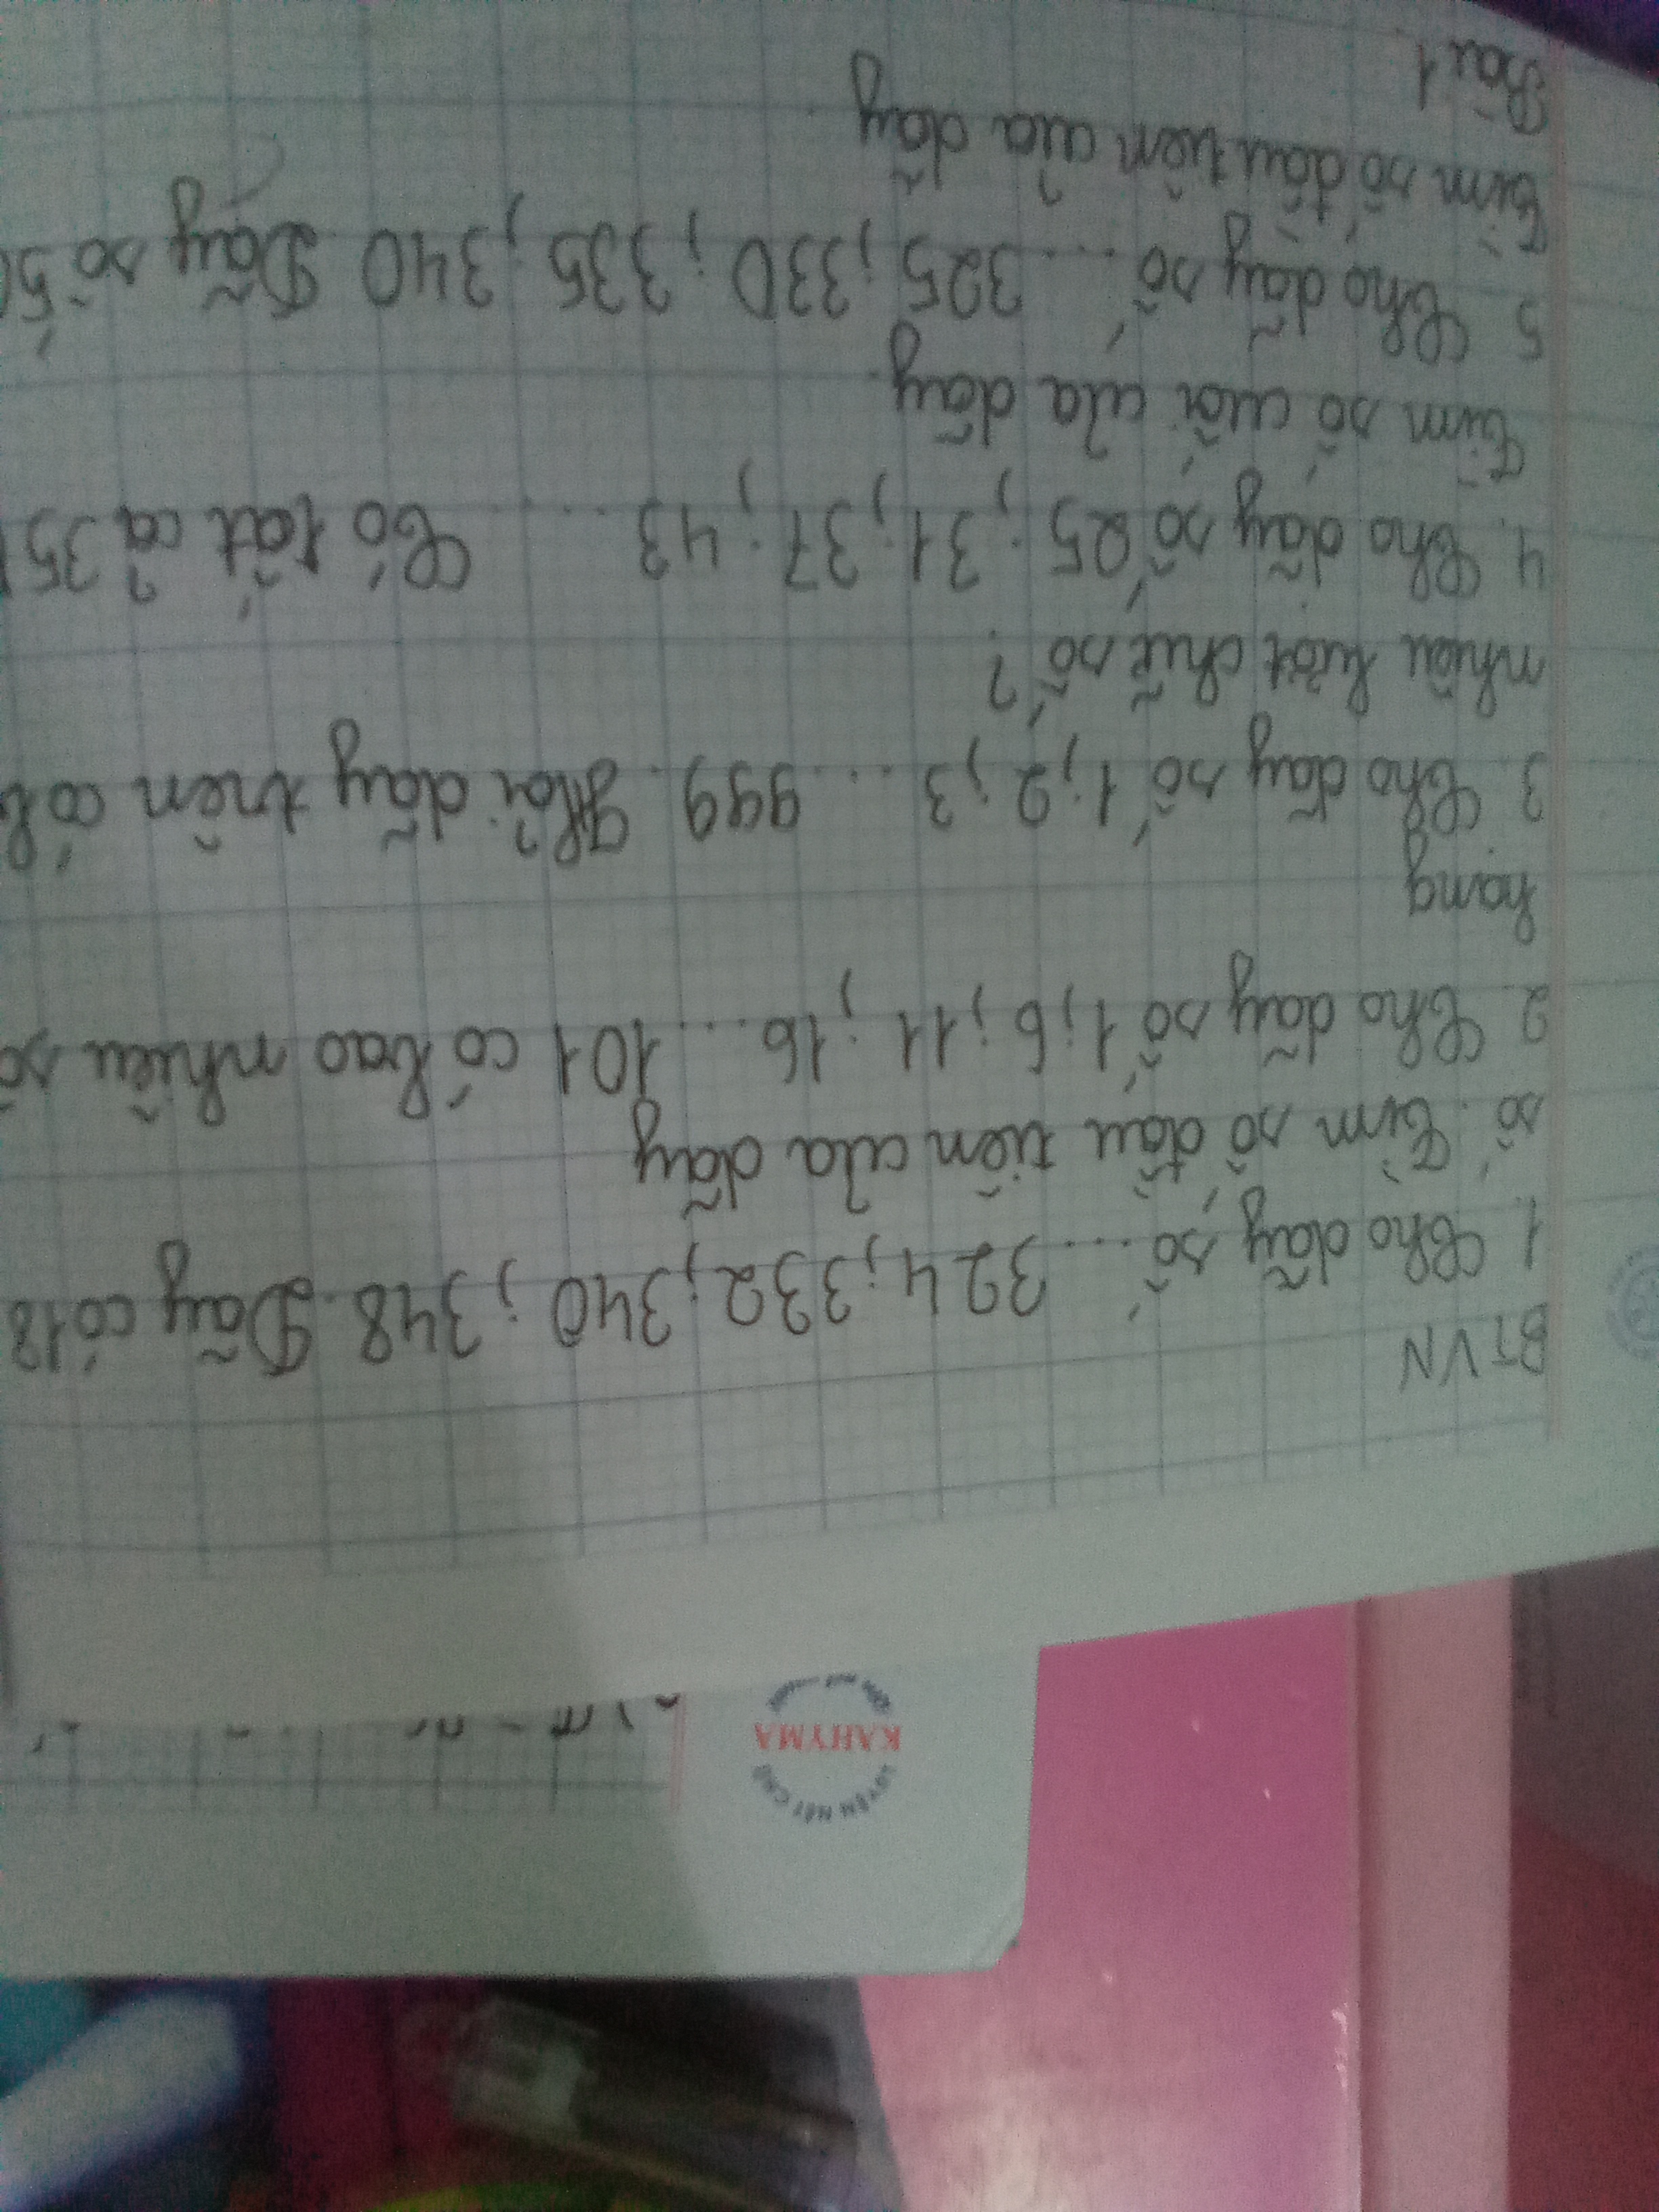 BTVN
1. Cho dãy số ... 324; 332; 340; 348. Dãy có 18
số. Tìm số đầu tiên của dãy
2. Cho dãy số 1; 6; 11; 16 ... 101 có bao nhiêu số
hạng
3. Cho dãy số 1; 2; 3 ... 999. Hỏi dãy trên có b
nhiêu lượt chữ số?
4. Cho dãy số 25; 31; 37; 43 ..... Có tất cả 35
tìm số cuối của dãy.
5 Cho dãy số ... 325; 330; 335; 340 Dãy số 50
Tìm số đầu tiên của dãy
Bài 1
LUYỆN NÉT CHỮ
KAHYMA